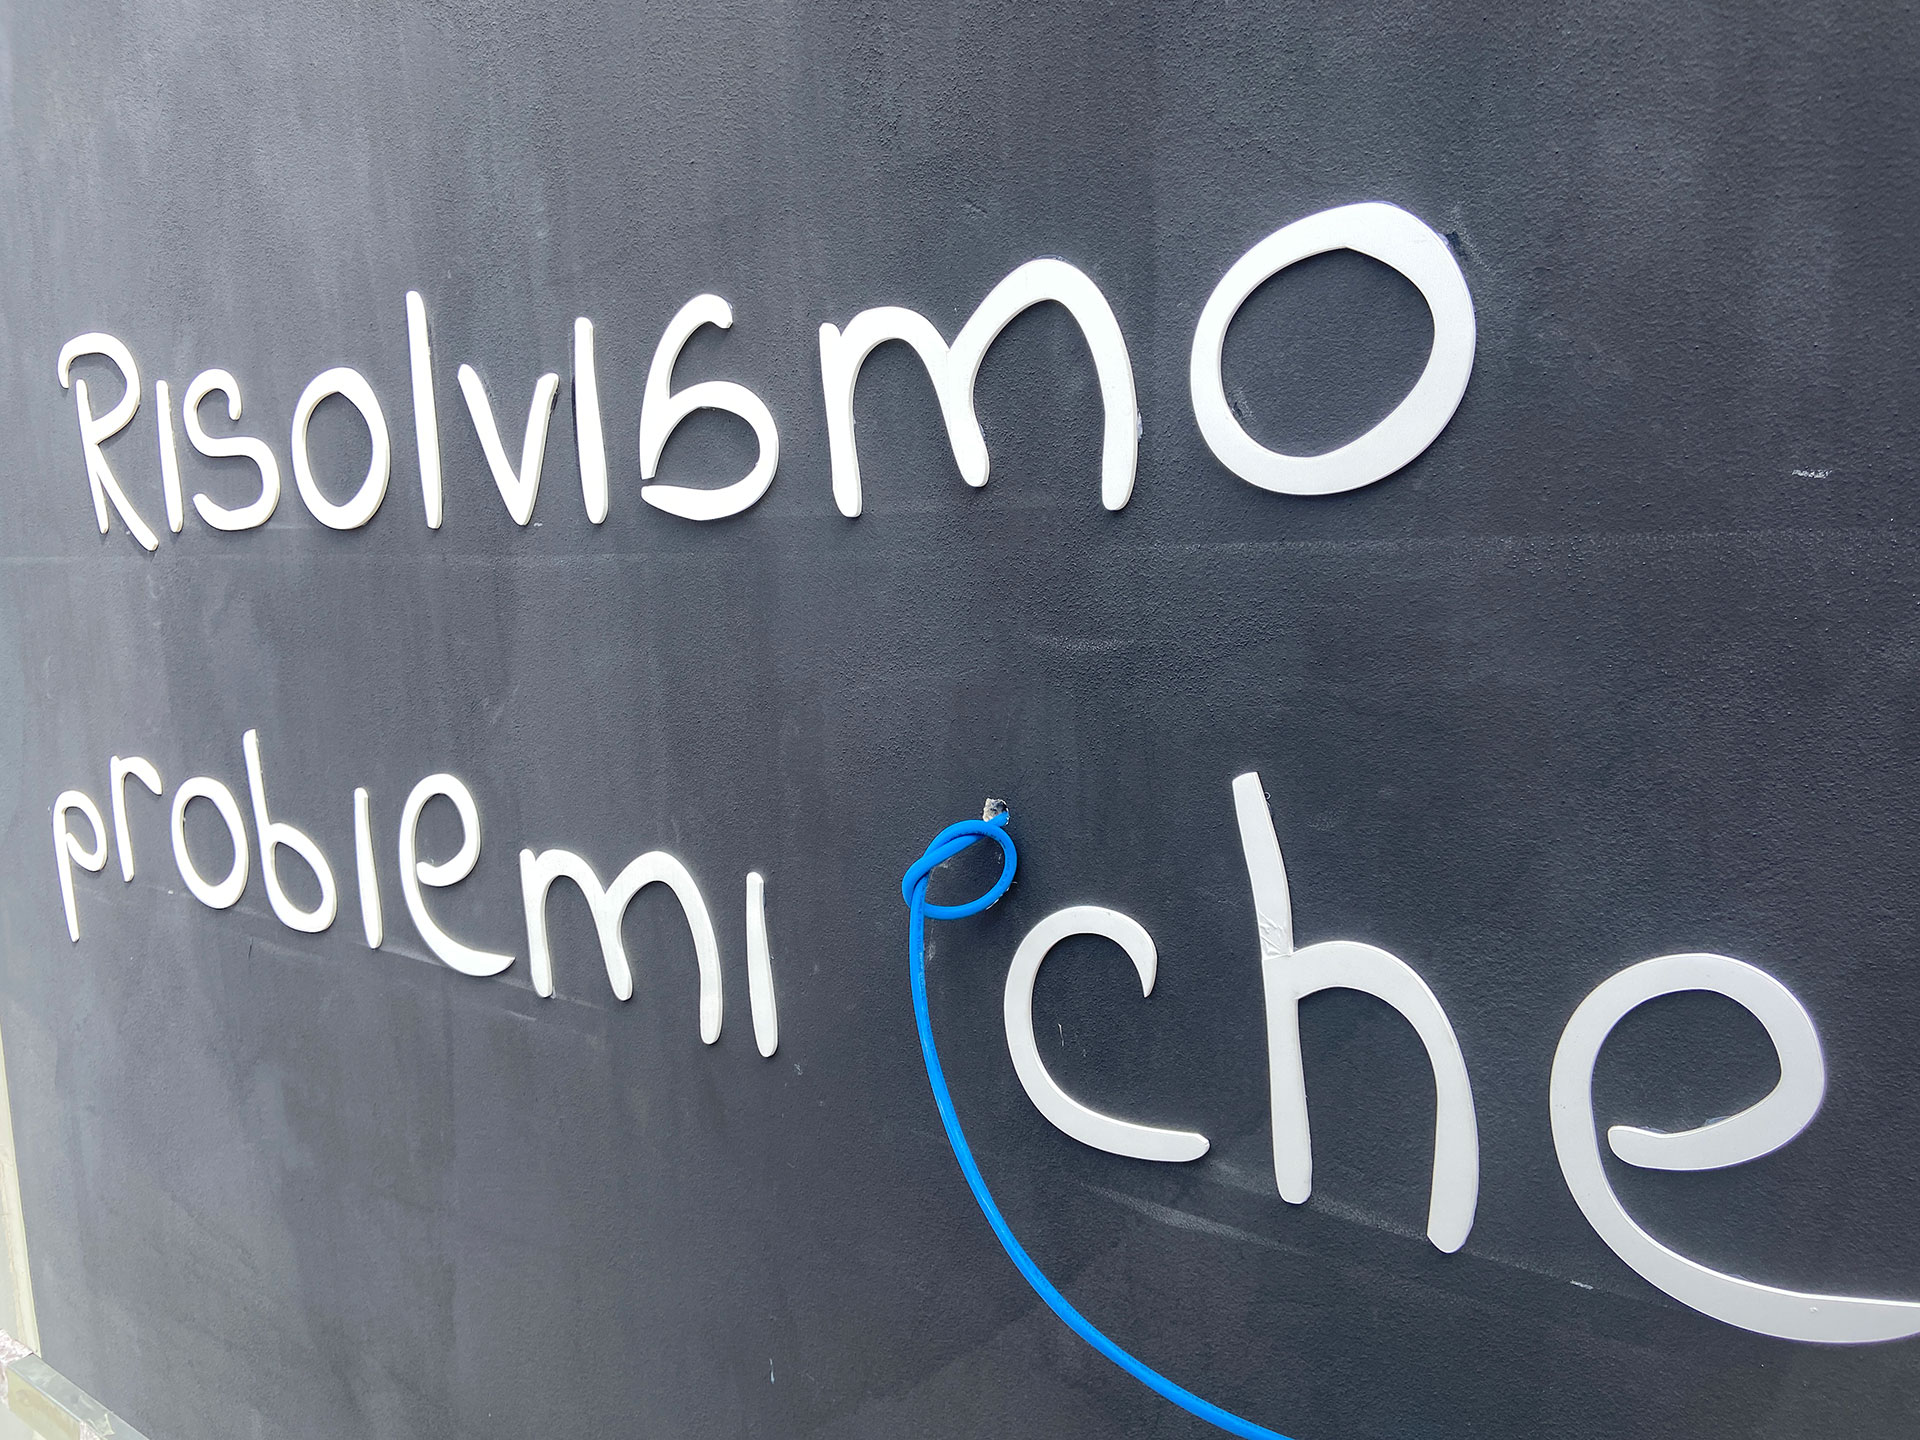 Risolviamo
problemi che